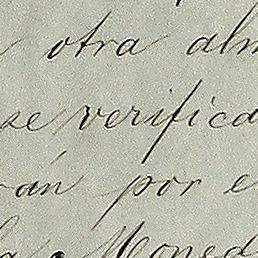 otra alm
se verifica
rán por e
la Moned